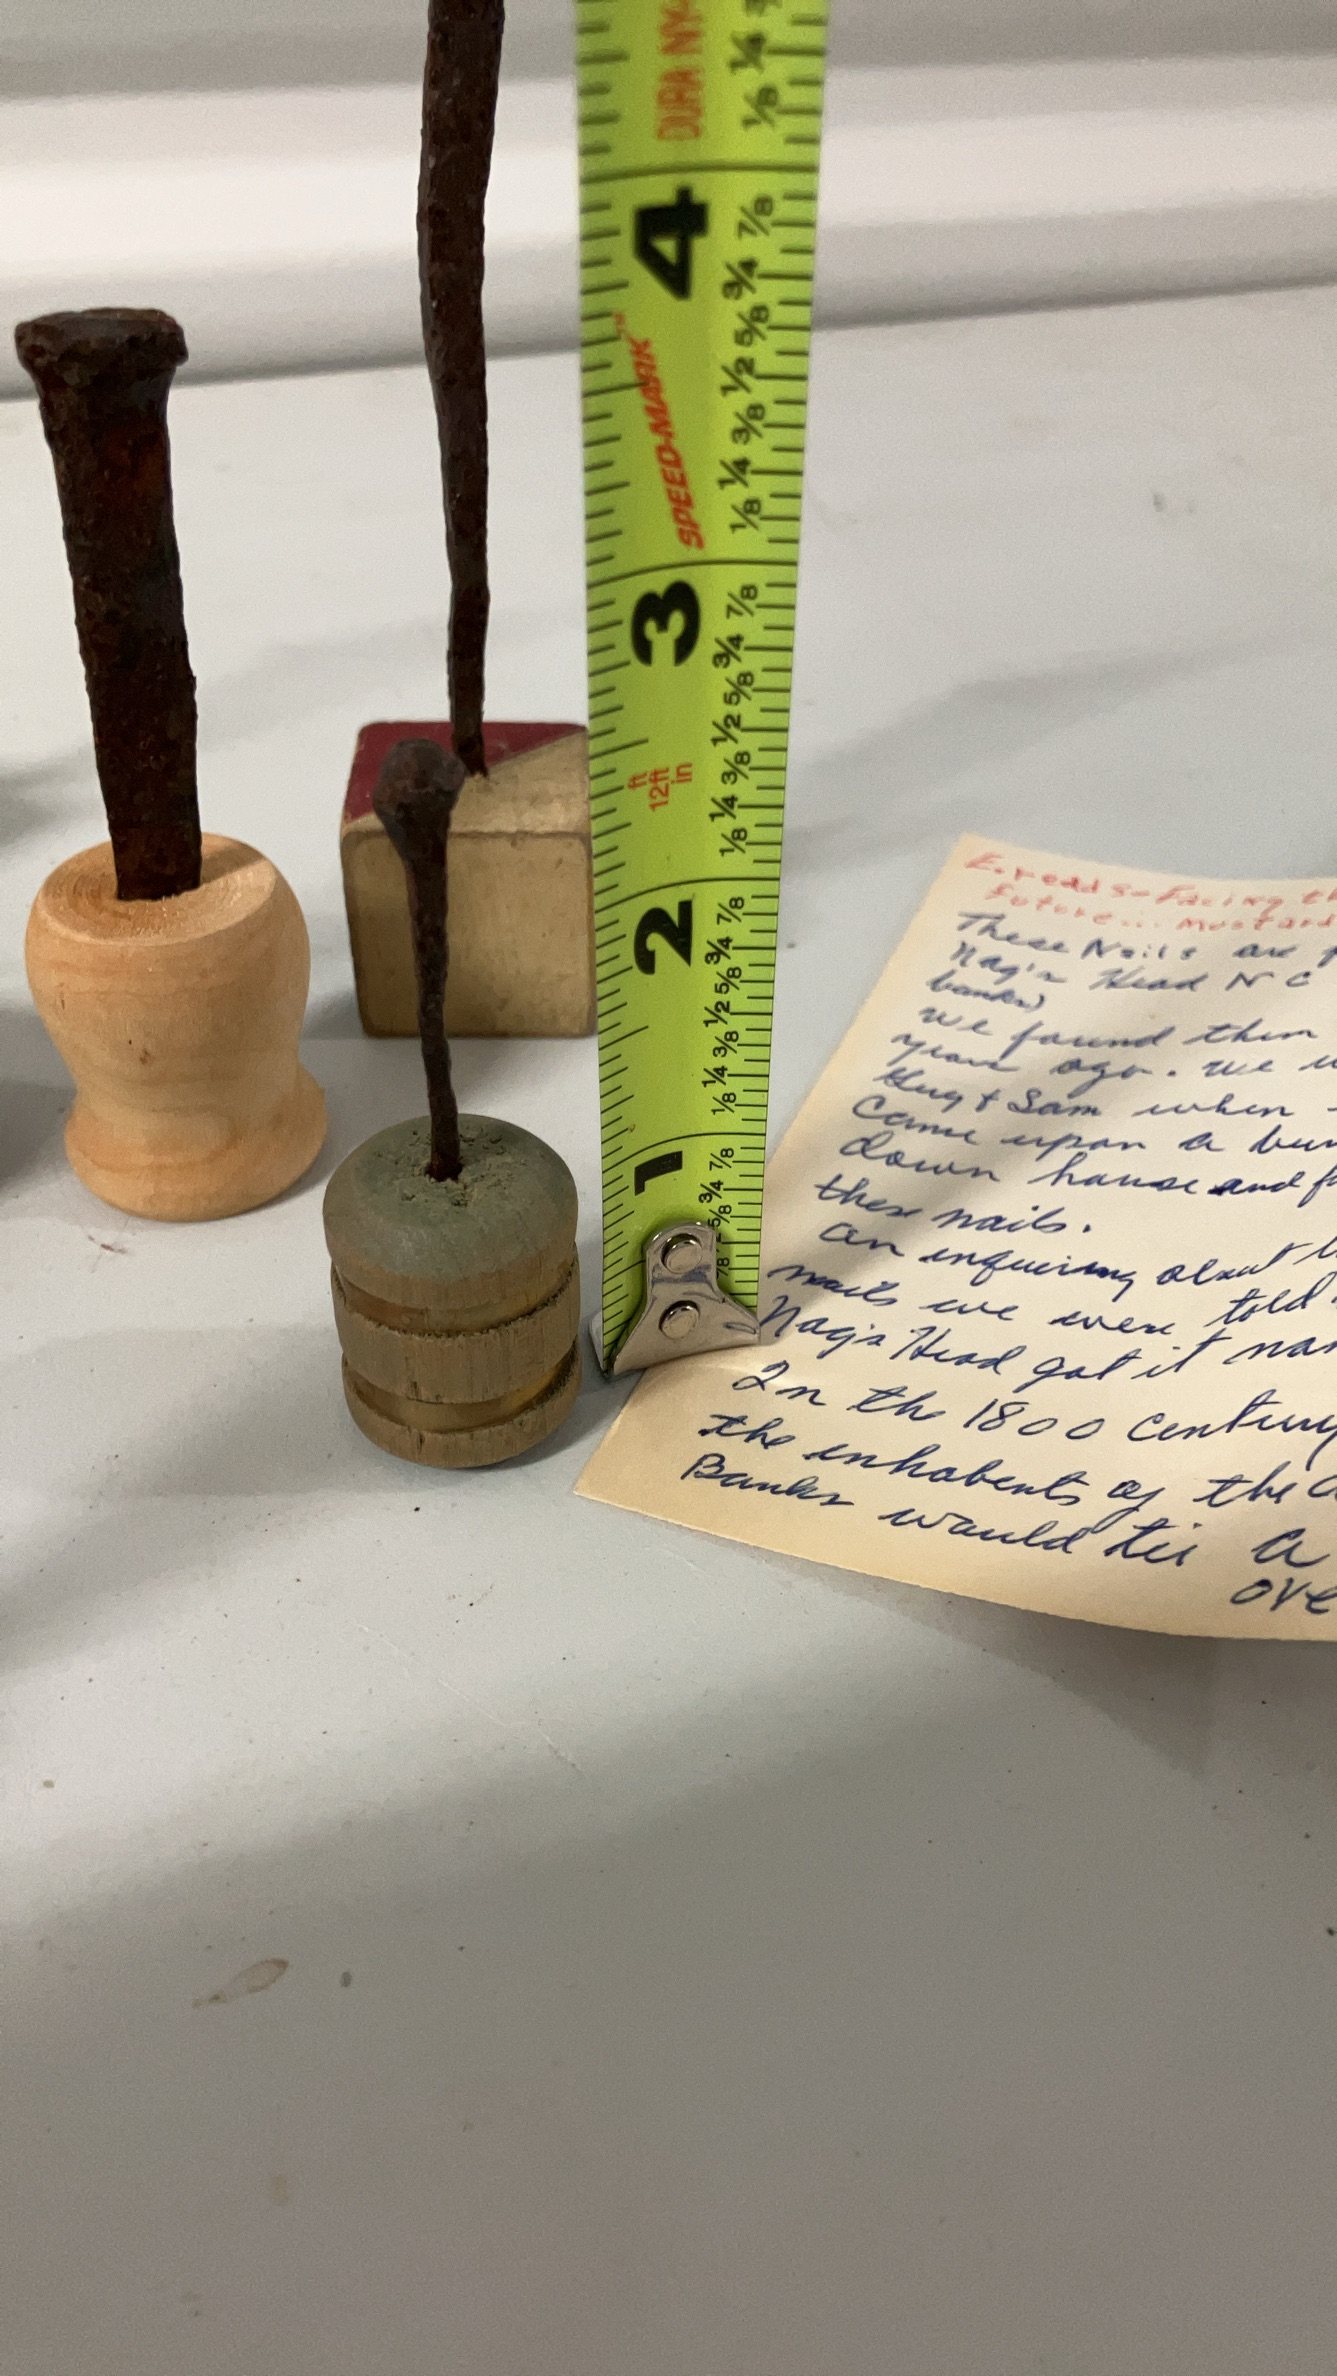 DURA NY-
1/8 1/4
4
7/8 3/4 5/8 1/2 3/8 1/4 1/8
SPEED-MARK™
3
7/8 3/4 5/8 1/2 3/8 1/4 1/8
ft
12ft
in
2
7/8 3/4 5/8 1/2 3/8 1/4 1/8
1
7/8 3/4 5/8
Facing th
Future... Mustard
These Nails are f
Nag's Head N C
banks)
we found them
years ago. we w
Guy & Sam when
Came upon a bur
down house and f
these nails.
on enquiring about
nails we were told
Nag's Head got it nam
In the 1800 Century
the inhabents of the O
Banks would tie a
ove